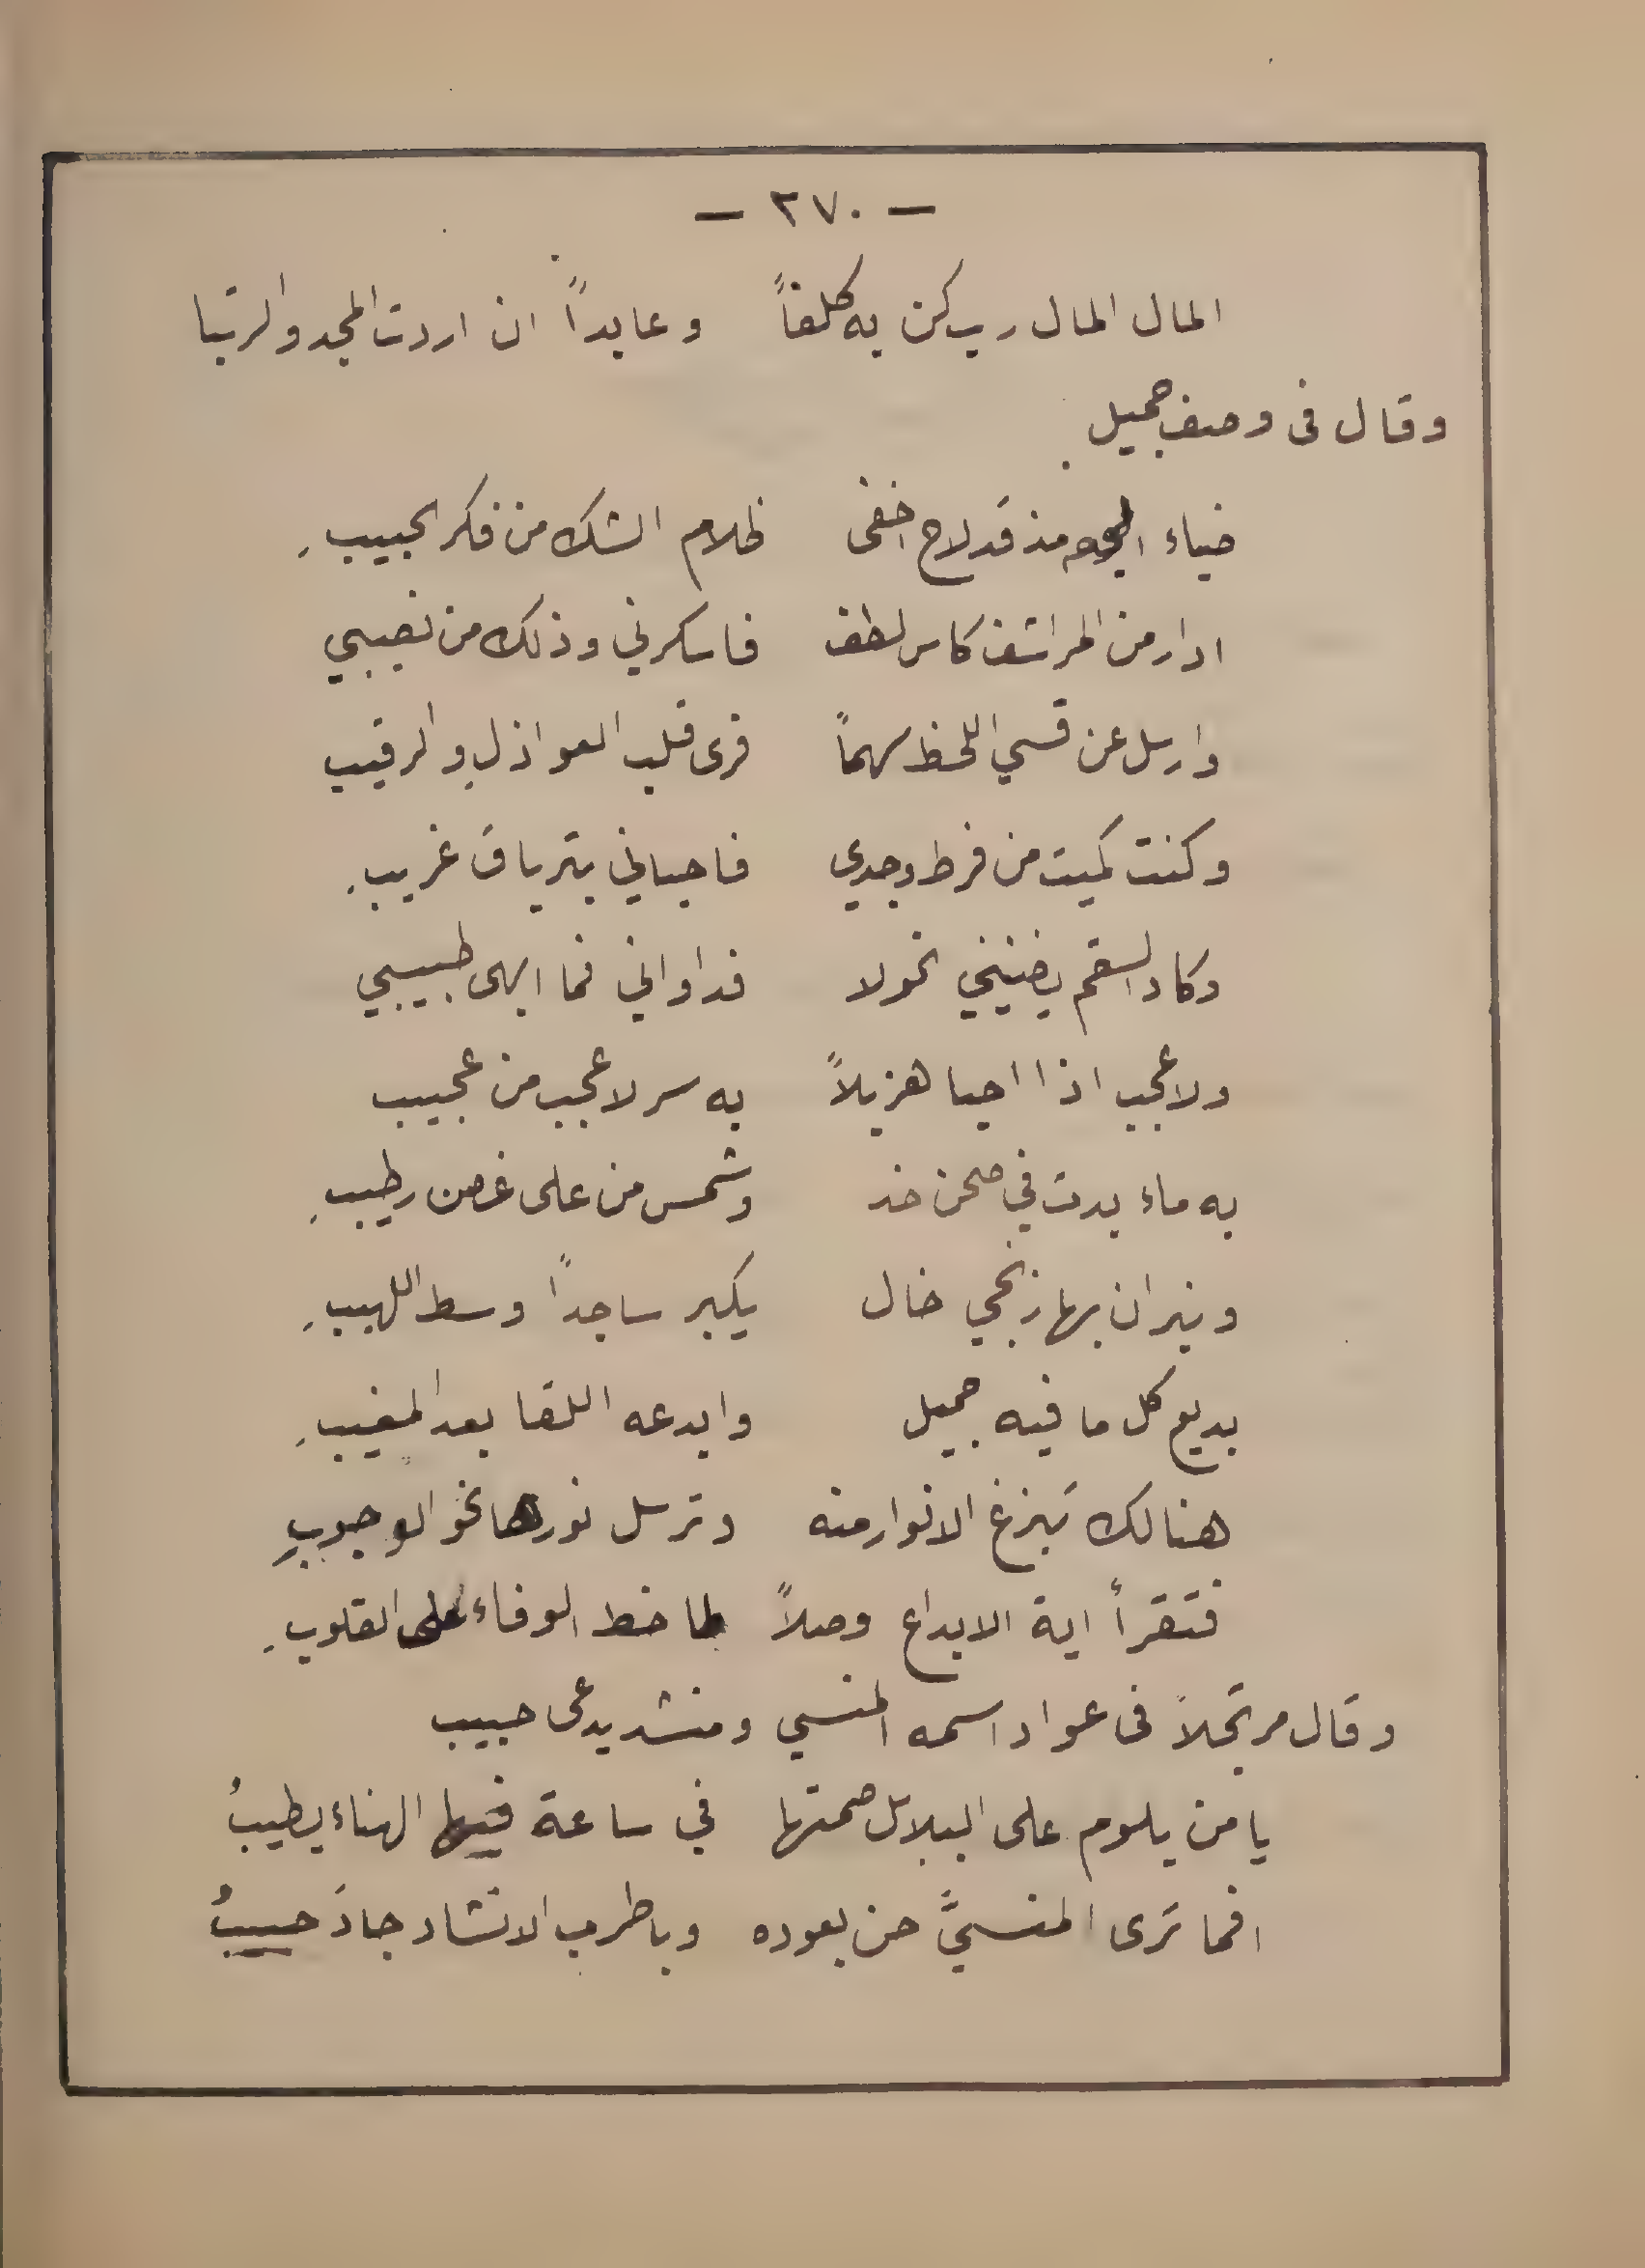 — ٢٧٠ —
المال المال رب كن به كلفاً وعابداً ان اردت المجد والرتبا
وقال فى وصف جميل
ضياء الوجه مذ قد لاح اخفى ظلام الشك من فكر الحبيبِ
ادار من المراشف كاس لطف فاسكرني وذلك من نصيبي
وارسل عن قسي اللحظ سهماً فرى قلب العواذلِ والرقيب
وكنت كميت من فرط وجدي فاحياني بترياق غريبِ
وكاد السقم يضنيني نحولا فداواني فما ابهى طبيبي
ولا عجب اذا احيا هزيلاً به سر لاعجب من عجيب
به ماء بدت في صحن خد وشمس من على غصن رطيبِ
ونيران بها زنجي خال يكبر ساجداً وسط اللهيبِ
بديع كل ما فيه جميل وابدعه اللقا بعد المغيبِ
هنالك تَبزغ الانوار منه وترسل نورها نحو الوجيبِ
فتقرأ اية الابداع وصلاً لما خط الوفاء على القلوبِ
وقال مرتجلاً فى عواد اسمه المنسي ومنشد يدعى حبيب
يا من يلوم على البلابل صمتها في ساعة فيها الهناء يطيبُ
افما تَرى المنسيَّ حن بعوده وباطرب الانشاد جادَ حبيبُ